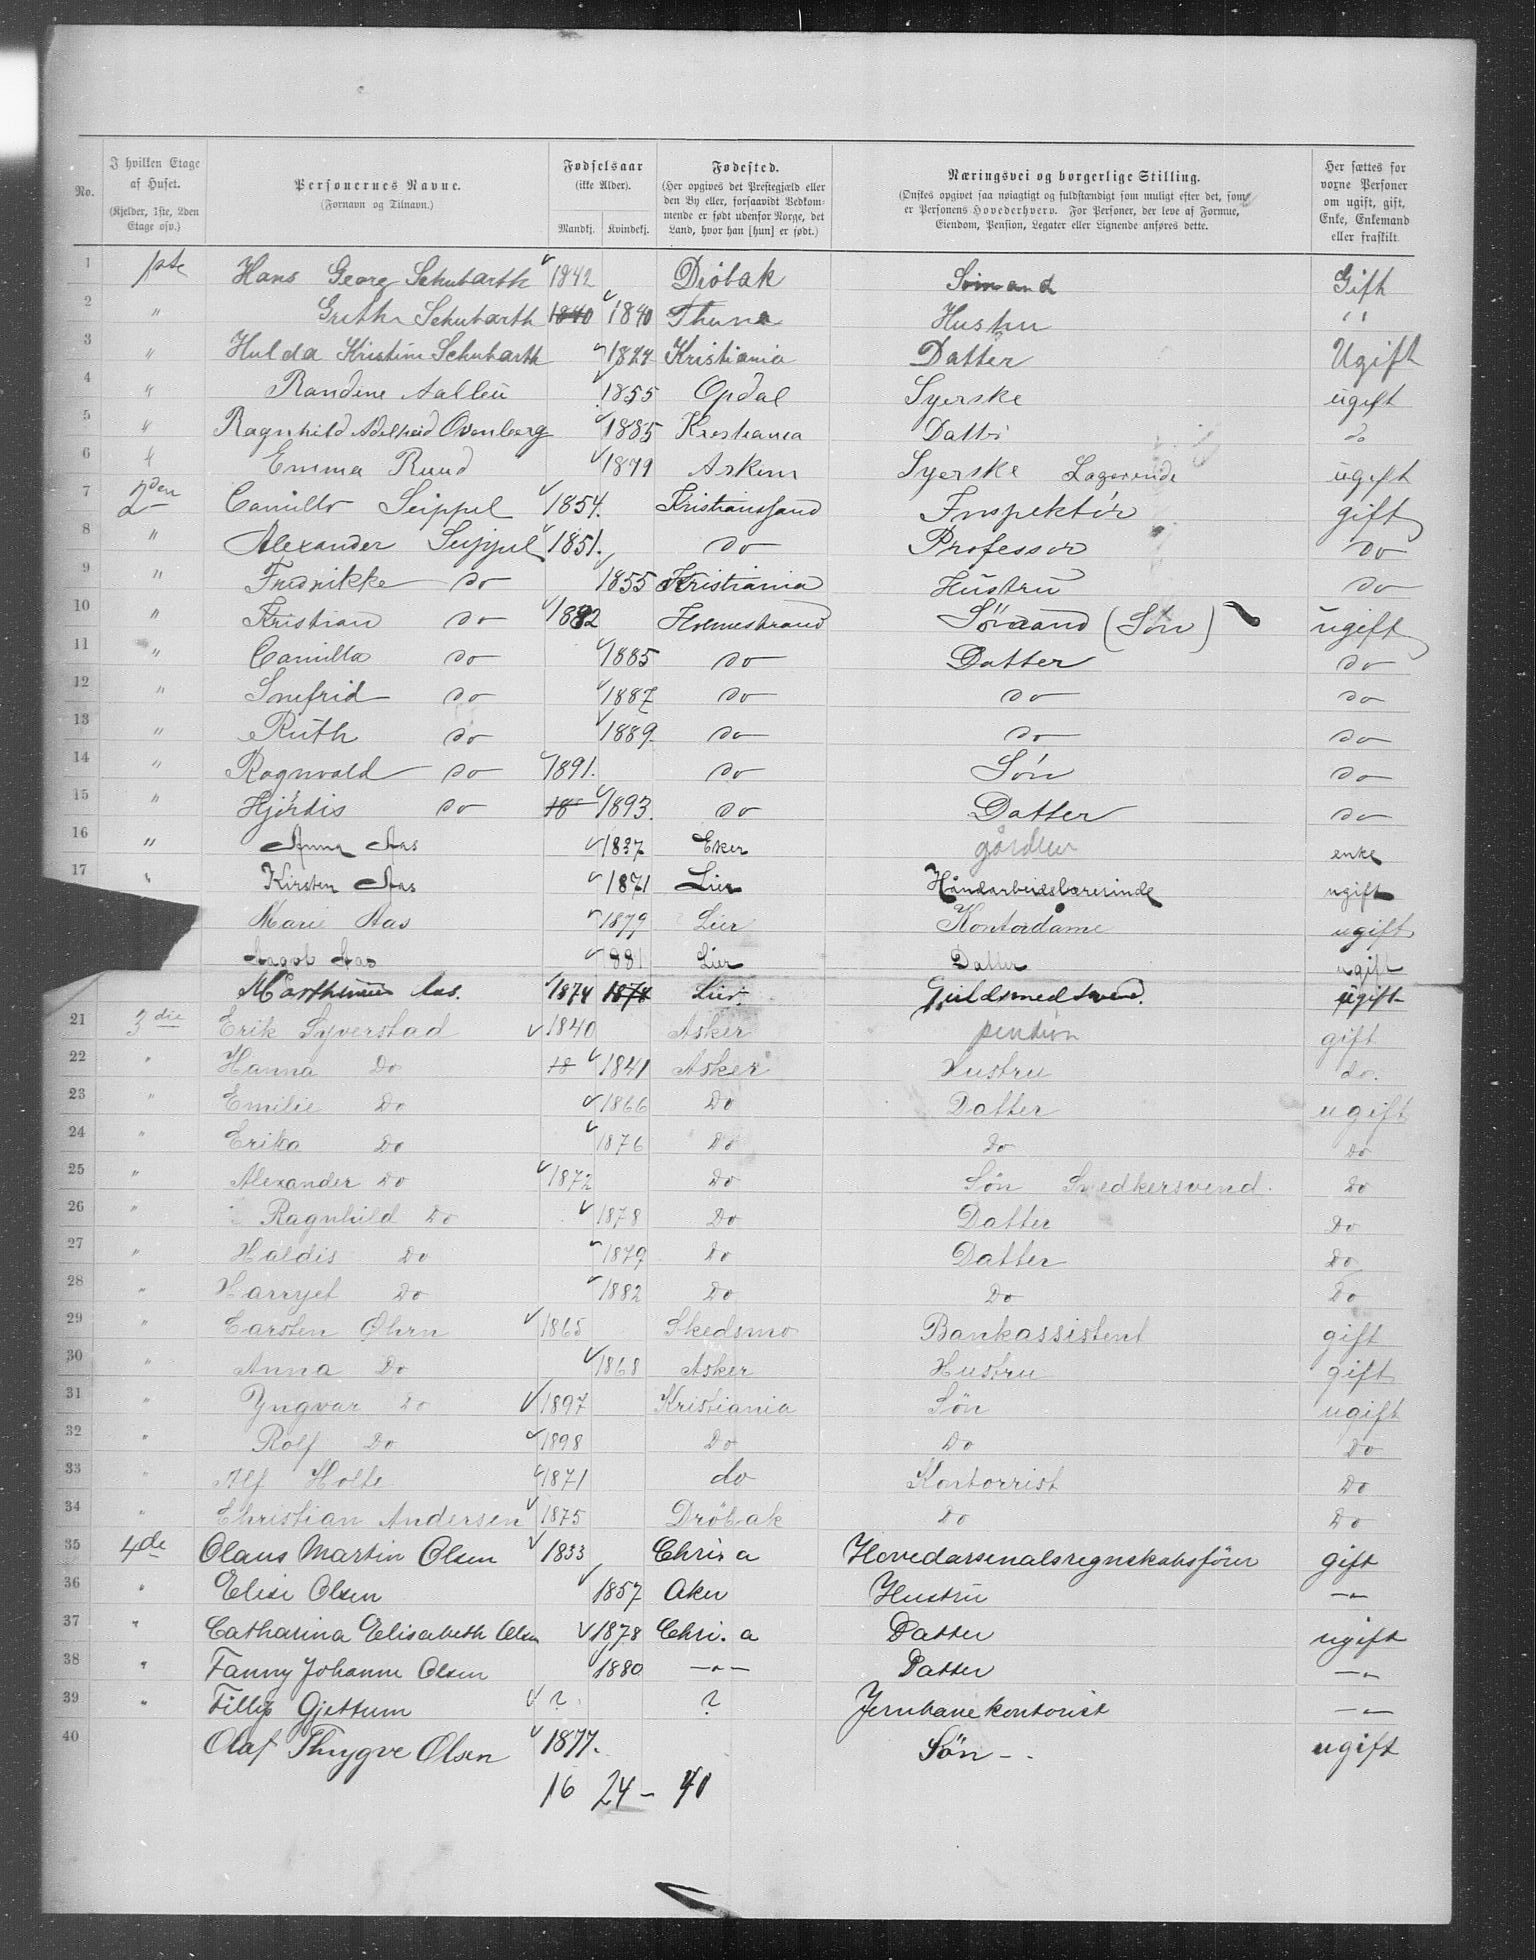 No. | I hvilken Etage af Huset. (Kjelder, 1ste, 2den Etage osv.) | Personernes Navne. (Fornavn og Tilnavn.) | Fødselsaar (ikke Alder). Mandkj. Kvindekj. | Fødested. (Her opgives det Prestegjæld eller den By eller, forsaavidt Vedkommende er født udenfor Norge, det Land, hvor han [hun] er født.) | Næringsvei og borgerlige Stilling. (Ønskes opgivet saa nøiagtigt og fuldstændigt som muligt efter det, som er Personens Hovederhverv. For Personer, der leve af Formue, Eiendom, Pension, Legater eller Lignende anføres dette. | Her sættes for voxne Personer om ugift, gift, Enke, Enkemand eller fraskilt.
1 1ste Hans Georg Schubarth 1842 Drøbak Gift
2 " Grethe Schubarth 1840 1840 Hustru "
3 " Hulda Kristine Schubarth Kristiania Datter Ugift
4 " Randine 1855 Opdal Syerske ugift
5 " Ragnhild Adelheid Ovenberg 1885 Kristiania Datter do
6 " Emma Ruud Askim Syerske Logerende ugift
7 2den Camillo Seippel 1854. Kristianssand Inspektør gift
8 " Alexander Seippel 1851. do Professor do
9 " Fredrikke do 1855 Kristiania Hustru do
10 " Kristian do 1882 Holmestrand Sømand (Søn) ugift
11 " Camilla do 1885 do Datter do
12 " Snefrid do 1887 do do do
13 " Ruth do 1889. do do do
14 " Ragnvald do 1891. do Søn do
15 " Hjørdis do 18 1893. do Datter do
16 " Anna Aas 1837 Eker enke
17 " Kirsten Aas 1871 Lier Håndarbeidslærerinde ugift
Marie Aas 1879 Lier Kontordame ugift
Aas 1881 Lier Datter ugift
Marthinius Aas. 1874 1874 Lier. Guldsmedsvend. ugift
21 3die Erik Syverstad 1840 Asker pension gift
22 " Hanna Do 18 1841 Asker Hustru do.
23 " Emilie Do 1866 Do Datter ugift
24 " Erika Do 1876 Do Do Do
25 " Alexander Do 1872 Do Søn Snedkersvend. Do
26 " Ragnhild Do 1878 Do Datter Do
27 " Haldis Do 1879 Do Datter Do
28 " Harryet Do 1882 Do Do Do
29 " Carsten Øhrn 1865 Skedsmo Bankassistent gift
30 " Anna Do 1868 Asker Hustru gift
31 " Yngvar Do 1897 Kristiania Søn ugift
32 " Rolf Do 1898 Do Do Do
33 " Alf Holte 1871 do Kontorrist Do
34 " Christian Andersen 1875 Drøbak Do Do
35 4de Olaus Martin Olsen 1833 Chris a Hovedarsenalsregnskabsfører gift
36 " Elise Olsen 1857 Aker Hustru -"-
37 " Catharina Elisabeth Olsen 1878 Chri. a Datter ugift
38 " Fanny Johanne Olsen 1880 -"- Datter -"-
39 " Fillip Gjettum ? ? Jernbanekontorist -"-
40 Olaf Thrygve Olsen 1877. Søn -. ugift
16 24 - 40